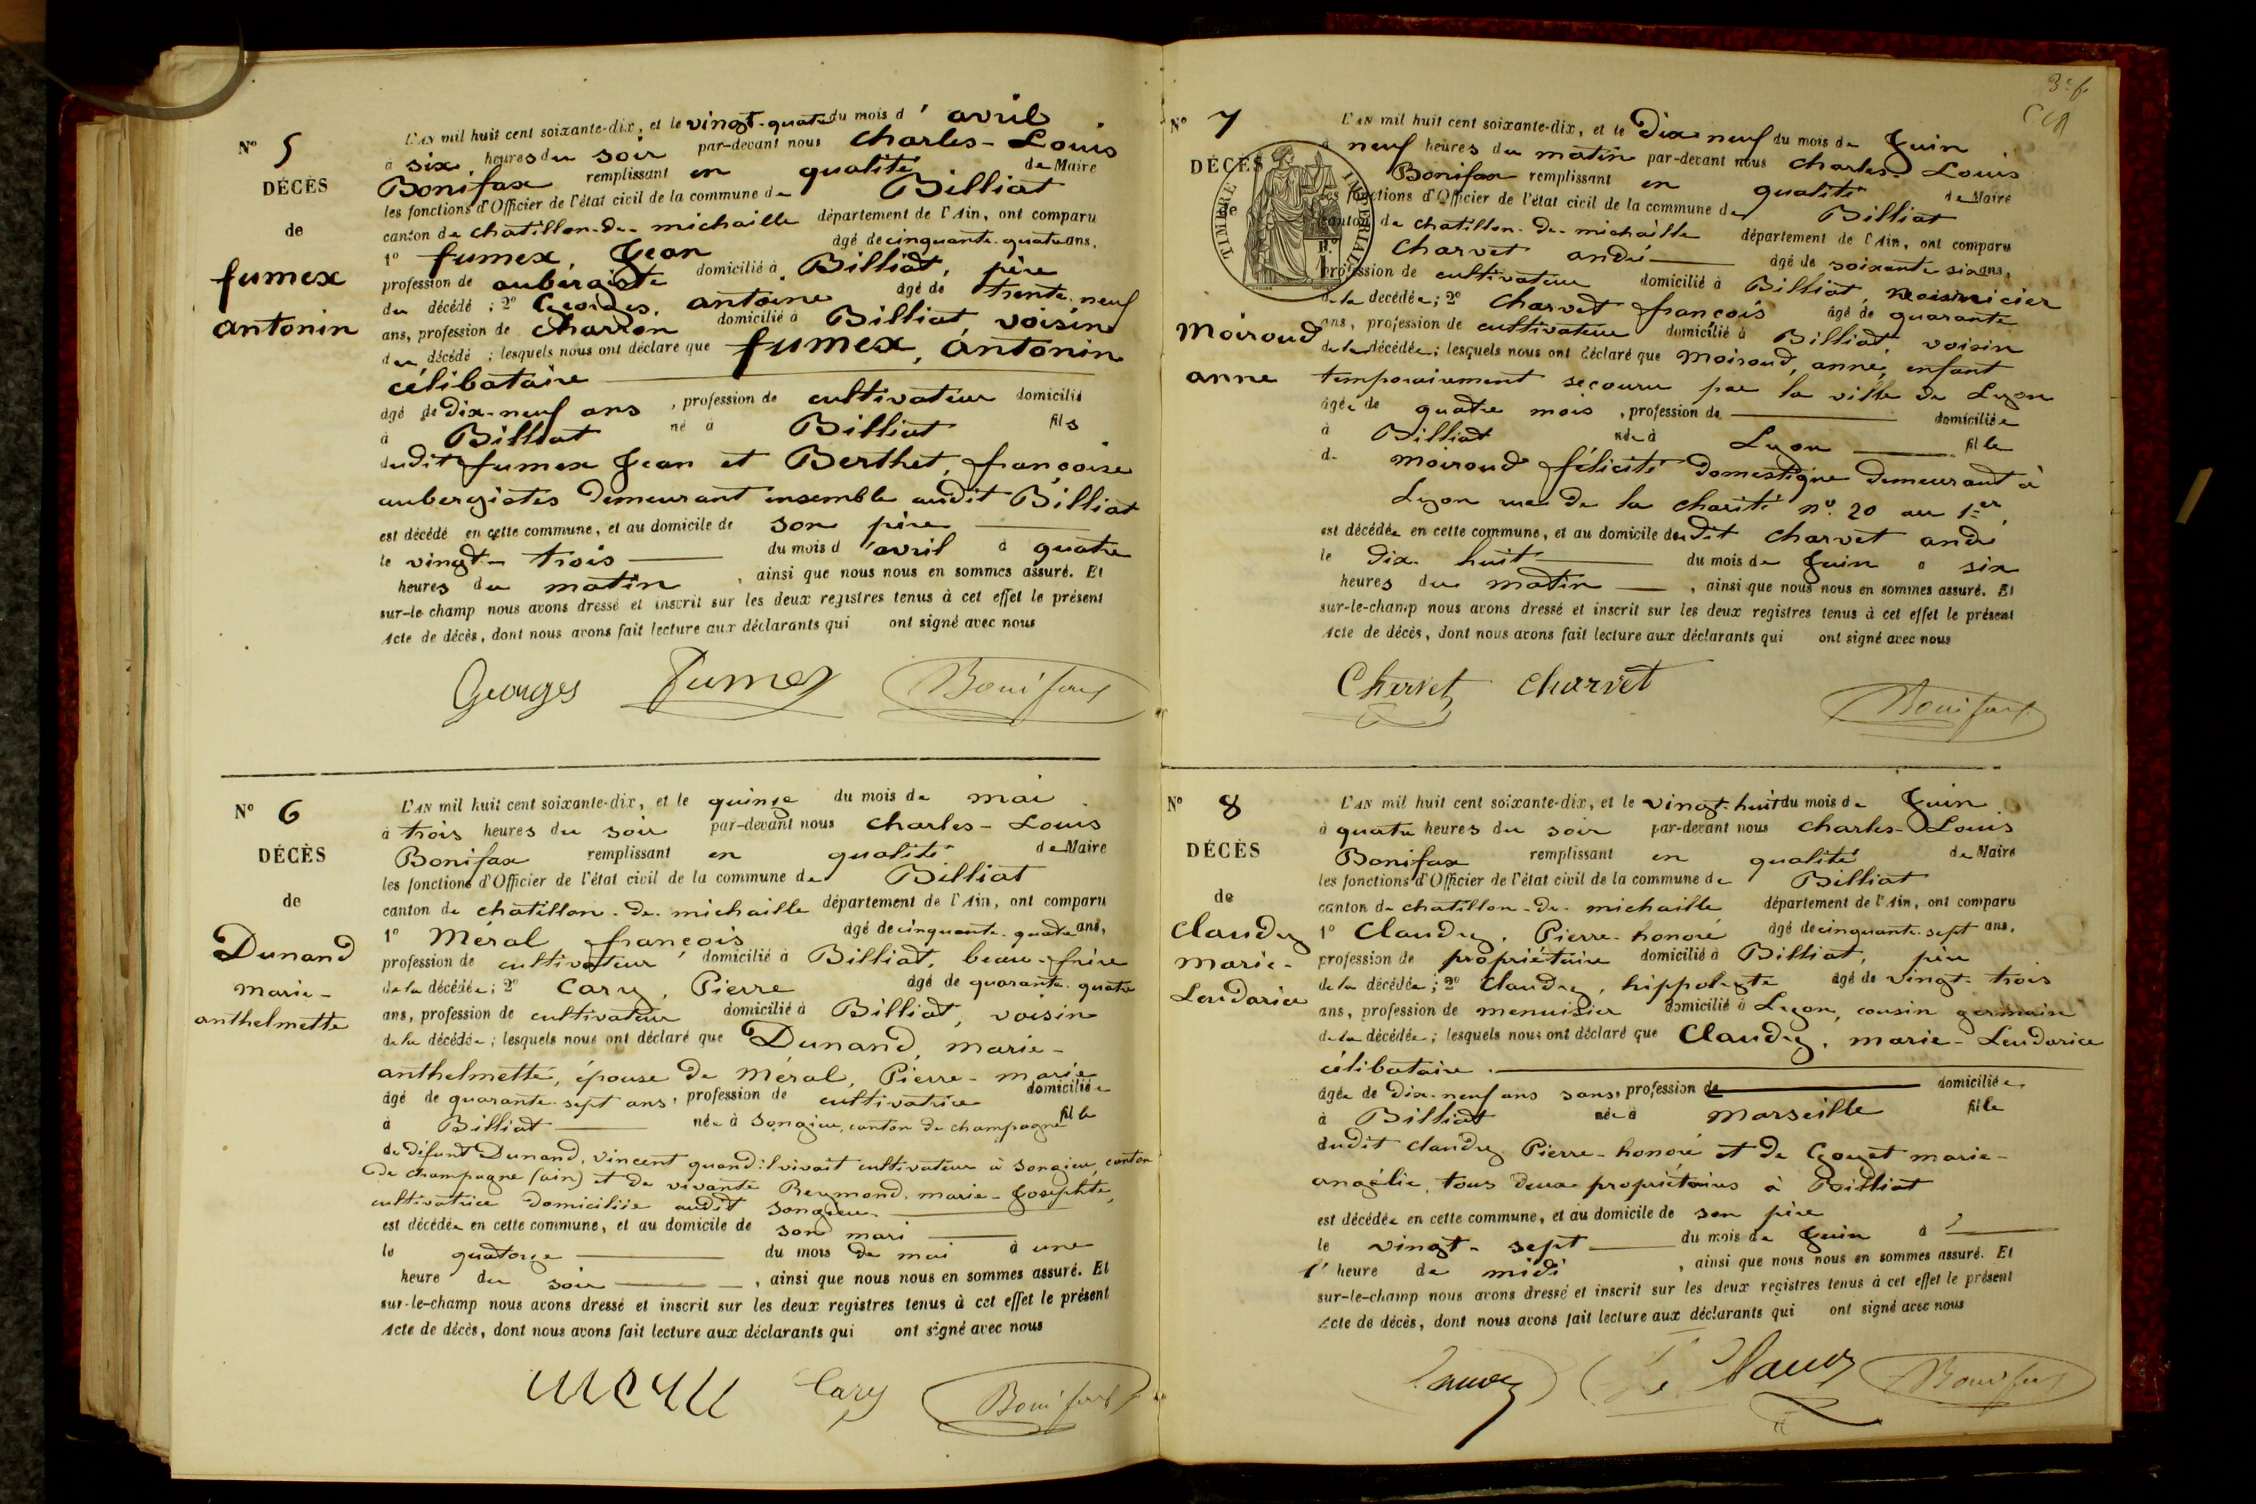 N° 5
DÉCÈS
de
fumex
antonin
L'AN mil huit cent soixante-dix, et le vingt-quatre du mois d'avril
à six heures du soir par-devant nous Charles-Louis
Bonifax remplissant en qualité de Maire
les fonctions d'Officier de l'état civil de la commune de Billiat
canton de chatillon-de-michaille département de l'Ain, ont comparu
1° fumex, Jean âgé de cinquante-quatre ans,
profession de aubergiste domicilié à Billiat, père
du décédé ; 2° Georges, antoine âgé de trente-neuf
ans, profession de charron domicilié à Billiat, voisin
du décédé ; lesquels nous ont déclaré que fumex, antonin
célibataire
âgé de dix-neuf ans, profession de cultivateur domicilié
à Billiat né à Billiat fils
dudit fumex Jean et Berthet, françoise
aubergistes demeurant ensemble audit Billiat
est décédé en cette commune, et au domicile de son père
le vingt-trois du mois d'avril à quatre
heures du matin, ainsi que nous nous en sommes assuré. Et
sur-le-champ nous avons dressé et inscrit sur les deux registres tenus à cet effet le présent
Acte de décès, dont nous avons fait lecture aux déclarants qui ont signé avec nous
Georges Fumex Bonifax
N° 6
DÉCÈS
de
Dunand
marie-
anthelmette
L'AN mil huit cent soixante-dix, et le quinze du mois de mai
à trois heures du soir par-devant nous Charles-Louis
Bonifax remplissant en qualité de Maire
les fonctions d'Officier de l'état civil de la commune de Billiat
canton de chatillon-de-michaille département de l'Ain, ont comparu
1° Méral françois âgé de cinquante-quatre ans,
profession de cultivateur domicilié à Billiat, beau-frère
de la décédée ; 2° Cary, Pierre âgé de quarante-quatre
ans, profession de cultivateur domicilié à Billiat, voisin
de la décédée ; lesquels nous ont déclaré que Dunand, marie-
anthelmette, épouse de Méral, Pierre-marie
âgé de quarante-sept ans, profession de cultivatrice domiciliée
à Billiat née à Songieu, canton de champagne fille
de défunt Dunand, Vincent quand il vivait cultivateur à Songieu, canton
de champagne (ain) et de vivante Reymond, marie-Josephte,
cultivatrice domiciliée audit Songieu.
est décédée en cette commune, et au domicile de son mari
le quatorze du mois de mai à une
heure du soir, ainsi que nous nous en sommes assuré. Et
sur-le-champ nous avons dressé et inscrit sur les deux registres tenus à cet effet le présent
Acte de décès, dont nous avons fait lecture aux déclarants qui ont signé avec nous
Cary Bonifax
N° 7
DÉCÈS
de
TIMBRE IMPERIAL
Moiroud
anne
L'AN mil huit cent soixante-dix, et le dix-neuf du mois de Juin
à neuf heures du matin par-devant nous Charles-Louis
Bonifax remplissant en qualité de Maire
les fonctions d'Officier de l'état civil de la commune de Billiat
canton de chatillon-de-michaille département de l'Ain, ont comparu
1° Charvet andré âgé de soixante six ans,
profession de cultivateur domicilié à Billiat, nourricier
de la décédée ; 2° Charvet françois âgé de quarante
ans, profession de cultivateur domicilié à Billiat voisin
de la décédée ; lesquels nous ont déclaré que Moiroud, anne, enfant
temporairement secouru par la ville de Lyon
âgée de quatre mois, profession de domiciliée
à Billiat née à Lyon fille
d- Moiroud félicité domestique demeurant à
Lyon rue de la charité n° 20 au 1er,
est décédée en cette commune, et au domicile dudit Charvet andré
le dix-huit du mois de Juin à six
heures du matin, ainsi que nous nous en sommes assuré. Et
sur-le-champ nous avons dressé et inscrit sur les deux registres tenus à cet effet le présent
Acte de décès, dont nous avons fait lecture aux déclarants qui ont signé avec nous
Chervet charvet Bonifax
N° 8
DÉCÈS
de
Claudy
marie-
Leudarice
L'AN mil huit cent soixante-dix, et le vingt-huit du mois de Juin
à quatre heures du soir par-devant nous Charles-Louis
Bonifax remplissant en qualité de Maire
les fonctions d'Officier de l'état civil de la commune de Billiat
canton de chatillon-de-michaille département de l'Ain, ont comparu
1° Claudy, Pierre-honoré âgé de cinquante-sept ans,
profession de propriétaire domicilié à Billiat, père
de la décédée ; 2° Claudy, hippolyte âgé de vingt-trois
ans, profession de menuisier domicilié à Lyon, cousin germain
de la décédée ; lesquels nous ont déclaré que Claudy, marie-Leudarice
célibataire.
âgée de dix-neuf ans sans, profession de domiciliée
à Billiat née à Marseille fille
dudit Claudy Pierre-honoré et de Gouget marie-
angélie, tous deux propriétaires à Billiat
est décédée en cette commune, et au domicile de son père
le vingt-sept du mois de Juin à
l'heure de midi, ainsi que nous nous en sommes assuré. Et
sur-le-champ nous avons dressé et inscrit sur les deux registres tenus à cet effet le présent
Acte de décès, dont nous avons fait lecture aux déclarants qui ont signé avec nous
Bonifax